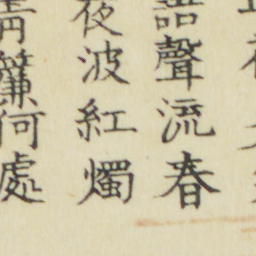 聲流春
夜波紅燭
簾何處